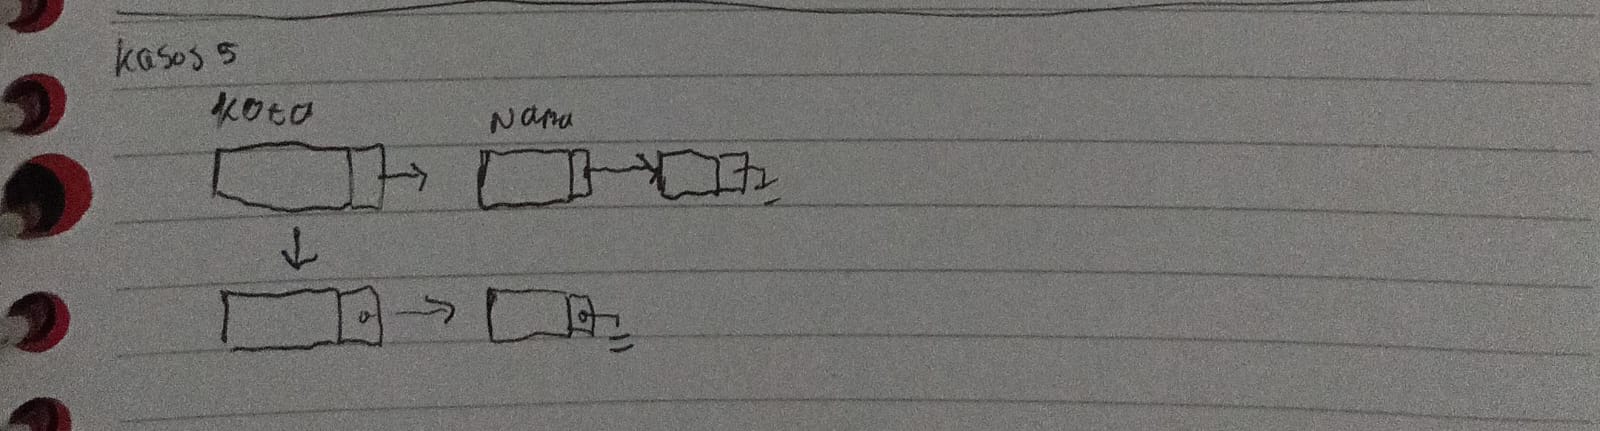 Kasos 5
Kota Nama